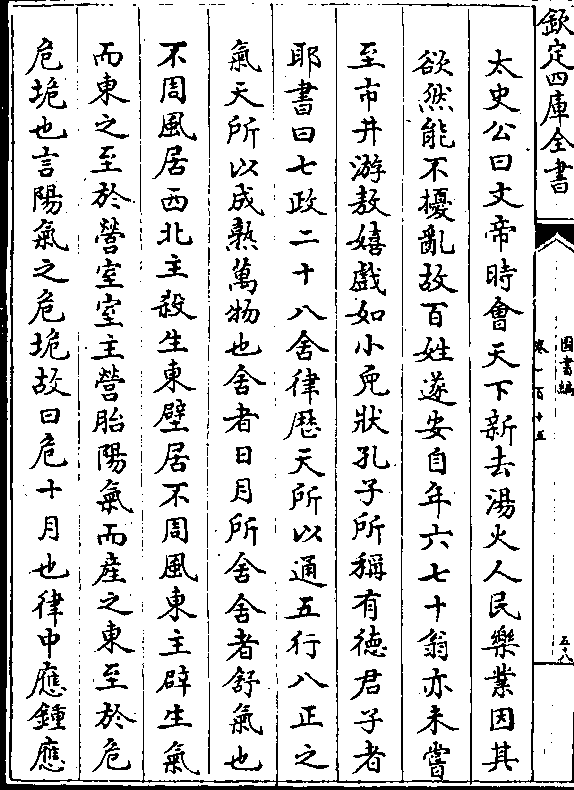 欽定四庫全書
圖書編
卷一百十五
五十八
太史公曰文帝時會天下新去湯火人民樂業因其
欲然能不擾亂故百姓遂安自年六七十翁亦未嘗
至市井游敖嬉戲如小兒狀孔子所稱有德君子者
耶書曰七政二十八舍律歷天所以通五行八正之
氣天所以成熟萬物也舍者日月所舍舍者舒氣也
不周風居西北主殺生東壁居不周風東主辟生氣
而東之至於營室室主營胎陽氣而產之東至於危
危垝也言陽氣之危垝故曰危十月也律中應鍾應